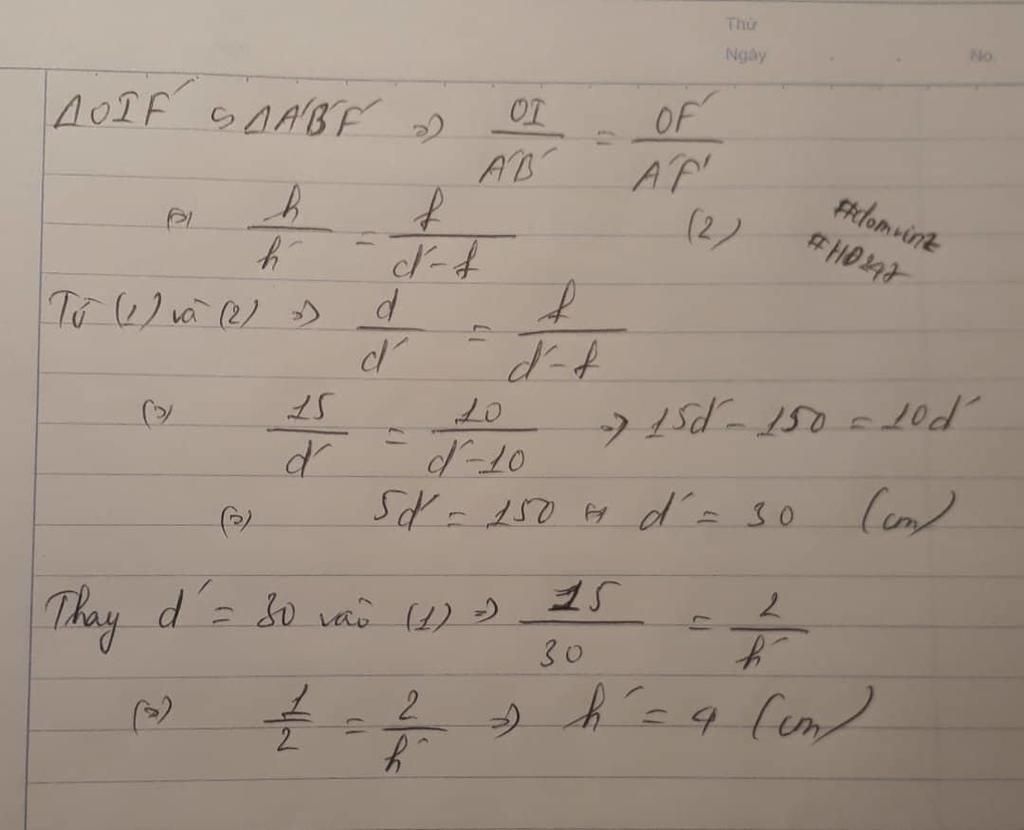 Thứ
Ngày . . No.
ΔOIF' ᔕ ΔA'B'F' => OI/A'B' = OF'/A'F'
(=) h/h' = f/(d'-f) (2)
#domrinz
#HD247
Từ (1) và (2) => d/d' = f/(d'-f)
(=) 15/d' = 10/(d'-10) => 15d' - 150 = 10d'
(=) 5d' = 150 ↔ d' = 30 (cm)
Thay d' = 30 vào (1) => 15/30 = 2/h'
(=) 1/2 = 2/h' => h' = 4 (cm)